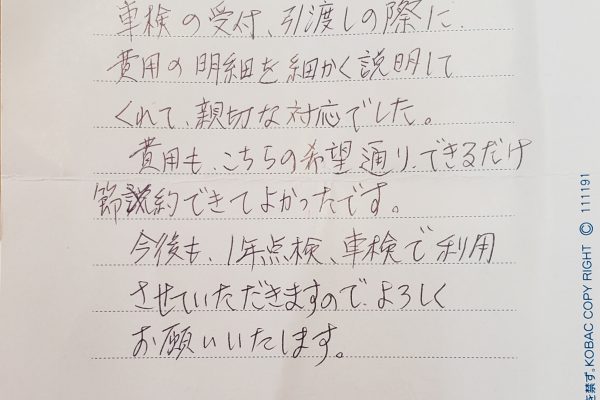 車検の受付、引渡しの際に、
費用の明細を細かく説明して
くれて、親切な対応でした。
費用も、こちらの希望通り、できるだけ
節約できてよかったです。
今後も、1年点検、車検で利用
させていただきますので、よろしく
お願いいたします。
を禁ず。KOBAC COPY RIGHT © 111191